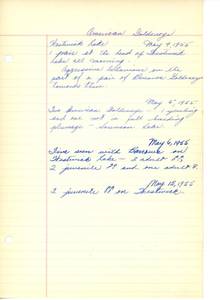 American Goldeneye
Lake May 4, 1955
1 pair at the head of
Lake all morning.
Aggressive behaviour on the
part of a pair of Barrow's Goldeneye
towards them.
May 5, 1955
Two American Goldeneye
and one not in full breeding
plumage - Lake
May 6, 1955
Five seen with Barrow's on
Lake - 2 adult
2 juvenile and one adult
May 12, 1955
2 juvenile on